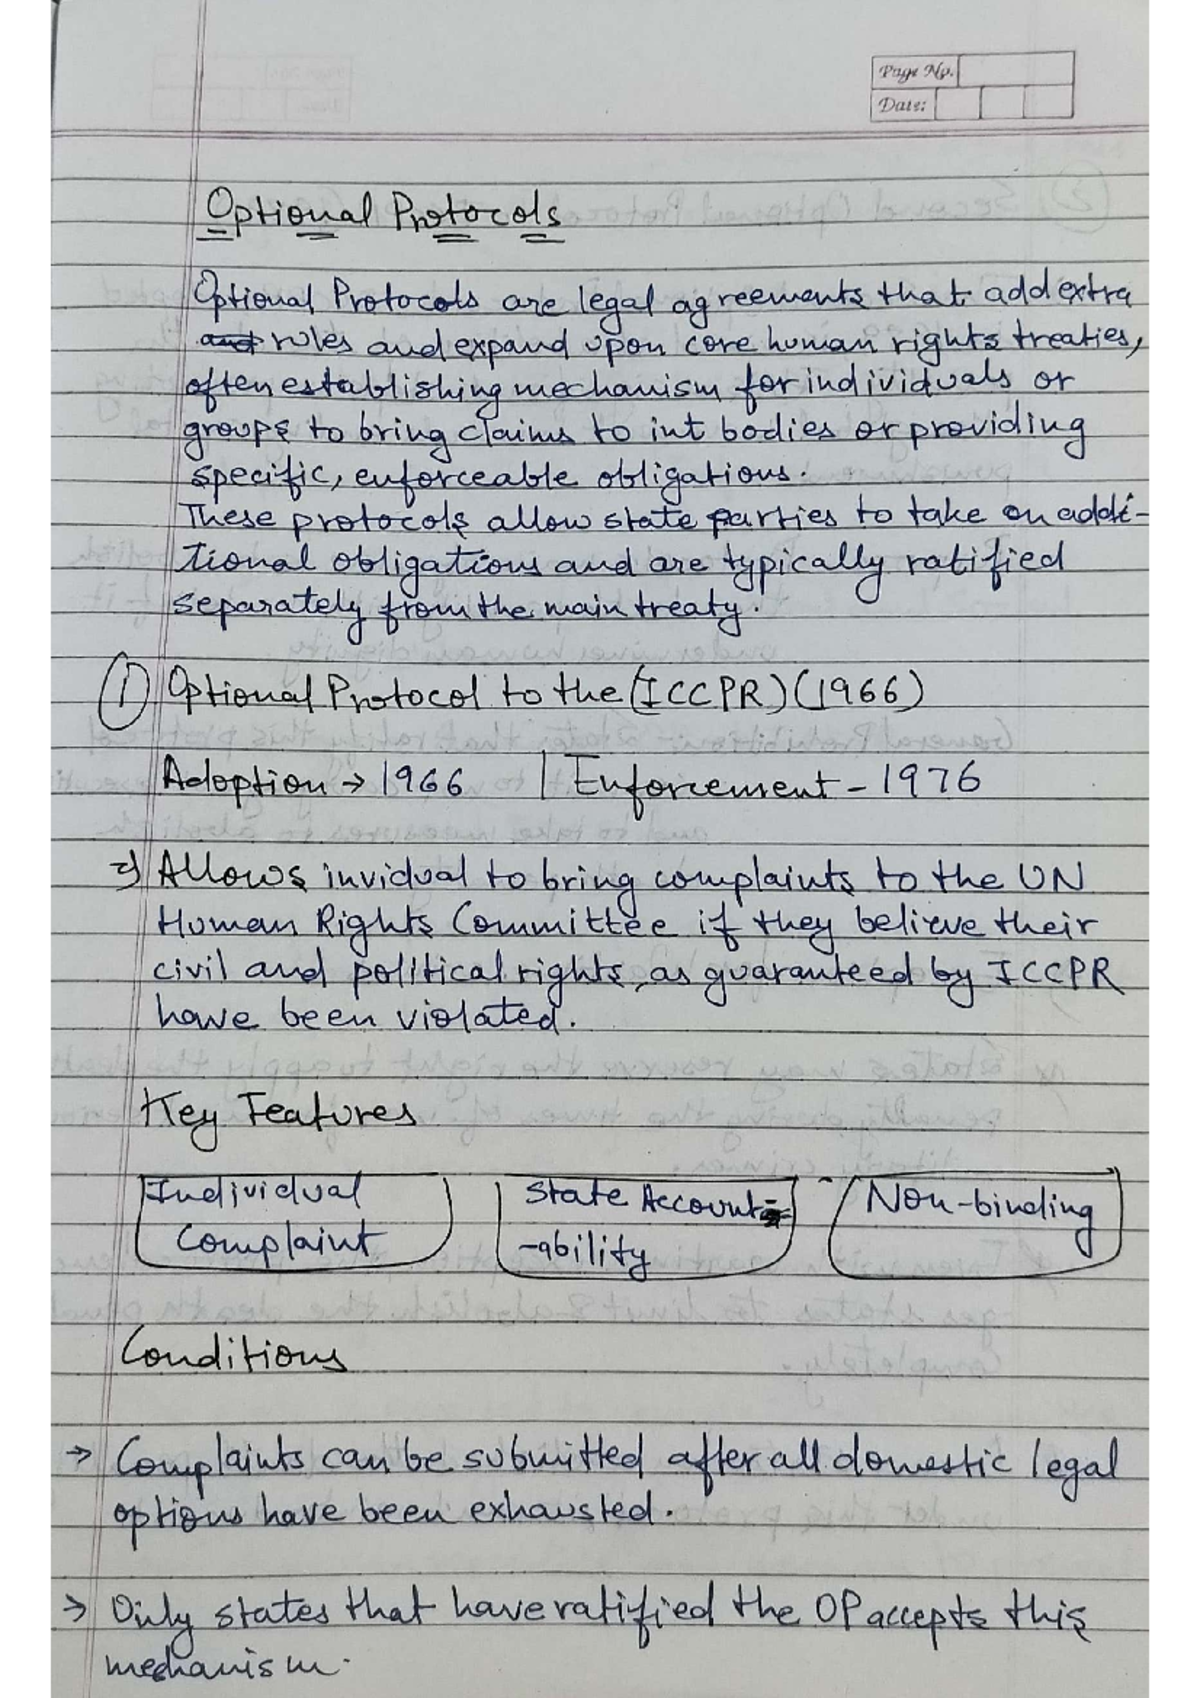 Page No.
Date:
Optional Protocols
Optional Protocols are legal agreements that add extra
and rules and expand upon core human rights treaties,
often establishing mechanism for individuals or
groups to bring claims to int bodies or providing
specific, enforceable obligations.
These protocols allow state parties to take on addi-
tional obligations and are typically ratified
separately from the main treaty.
① Optional Protocol to the (ICCPR) (1966)
Adoption → 1966 | Enforcement - 1976
⇒ Allows invidual to bring complaints to the UN
Human Rights Committee if they believe their
civil and political rights, as guaranteed by ICCPR
have been violated.
Key Features
Individual State Account- Non-binding
Complaint -ability
Conditions
→ Complaints can be submitted after all domestic legal
options have been exhausted.
→ Only states that have ratified the OP accepts this
mechanism.